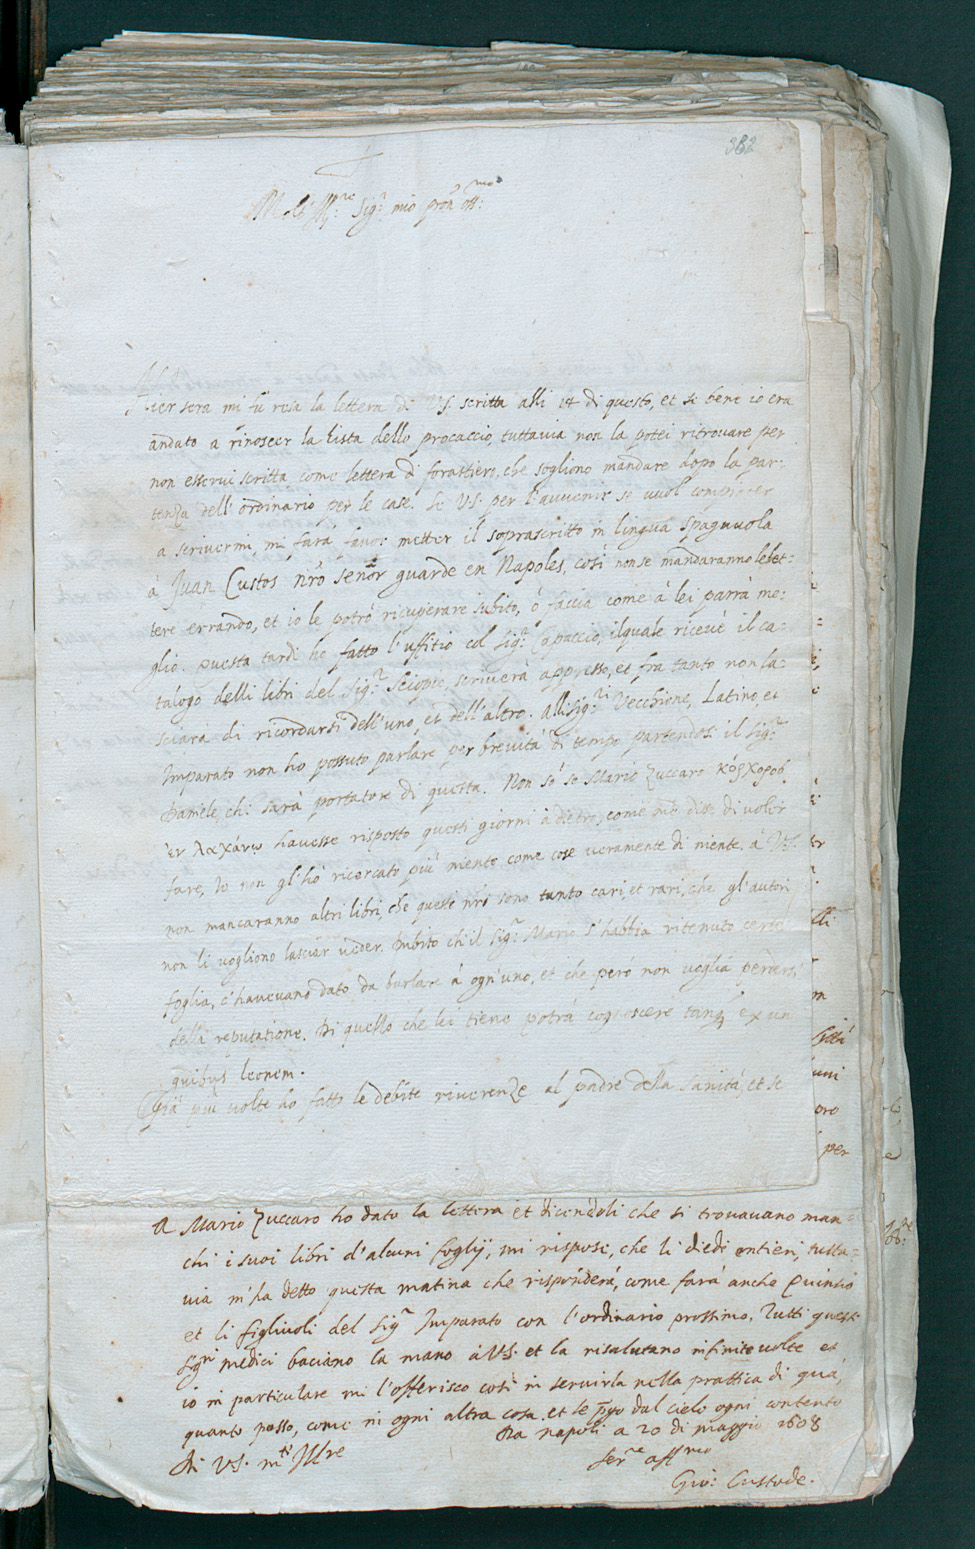 382
Molt' Ill:re Sig:r mio pron oss:mo
Hier sera mi fù resa la lettera di V.S. scritta alli 14 di questo, et si bene io era
andato a rinoscer la lista dello procaccio, tuttauia non la potei ritrouare per
non esserui scritta come lettera di forastiero, che sogliono mandare dopo la par:
tenza dell'ordinario per le case. Se V.S. per l'auuenir se vuol compiacer
a scriuermi, mi farà fauor metter il soprascritto in lingua spagnuola
à Juan Custos nrõ señor guarde en Napoles, così non se mandaranno le let:
tere errando, et io le potrò ricuperare subito, ò faccia come à lei parrà me:
glio. Questa tardi hò fatto l'uffitio col Sig:r Capaccio, il quale riceuè il ca:
talogo delli libri del Sig:r Scioppio, scriuerà appresso, et fra tanto non la:
sciarà di ricordarsi dell'uno, et dell'altro. Alli Sig:ri Vecchione, Latino, et
Imparato non ho possuto parlare per breuità di tempo partendosi il Sig:r
Daniele, chi sarà portatore di questa. Non sò se Mario Zuccaro κόρχορος
ἐν λαχάνῳ hauesse risposto questi giorni à dietro, come me disse di voler
fare, Io non gl'hò ricercato più niente come cose veramente di niente. à V.S.
non mancaranno altri libri, che questi nrĩ sono tanto cari, et rari, che gl'autori
non li vogliono lasciar veder. Dubito ch'il Sig:r Mario s'habbia ritenuto certi
foglia, c'haueuano dato da burlare à ogn'uno, et che però non voglia perdersi
della reputatione. Di quello che lei tiene potrà cognoscere tanq ex un
guibus leonem.
Già più volte ho fatto le debite riuerenze al padre della Sanità, et se
A Mario Zuccaro ho dato la lettera et dicendoli che si trouauano man=
chi i suoi libri d'alcuni foglij, mi rispose, che li diedi entieri, tutta=
uia m'ha detto questa matina che risponderà, come farà anche Quintio
et li figliuoli del Sig:r Imparato con l'ordinario prossimo. Tutti questi
Sigri medici baciano la mano à V.S. et la risalutano infinite volte et
io in particulare mi l'offerisco così in seruirla nella prattica di quà,
quanto posso, come in ogni altra cosa et le pgo dal cielo ogni contento
Da Napoli a 20 di maggio 1608
Di V.S. mto Illre
Serre affmo
Gio: Custode.